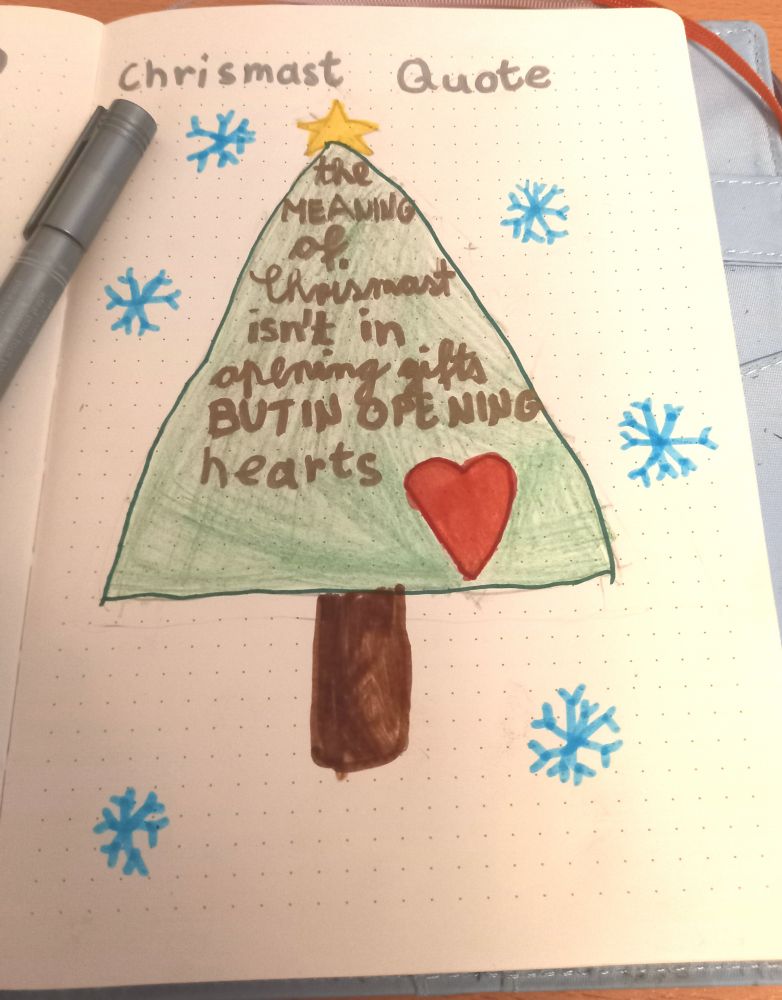 Chrismast Quote
the
MEANING
of
Chrismast
isn't in
opening gifts
BUT IN OPENING
hearts